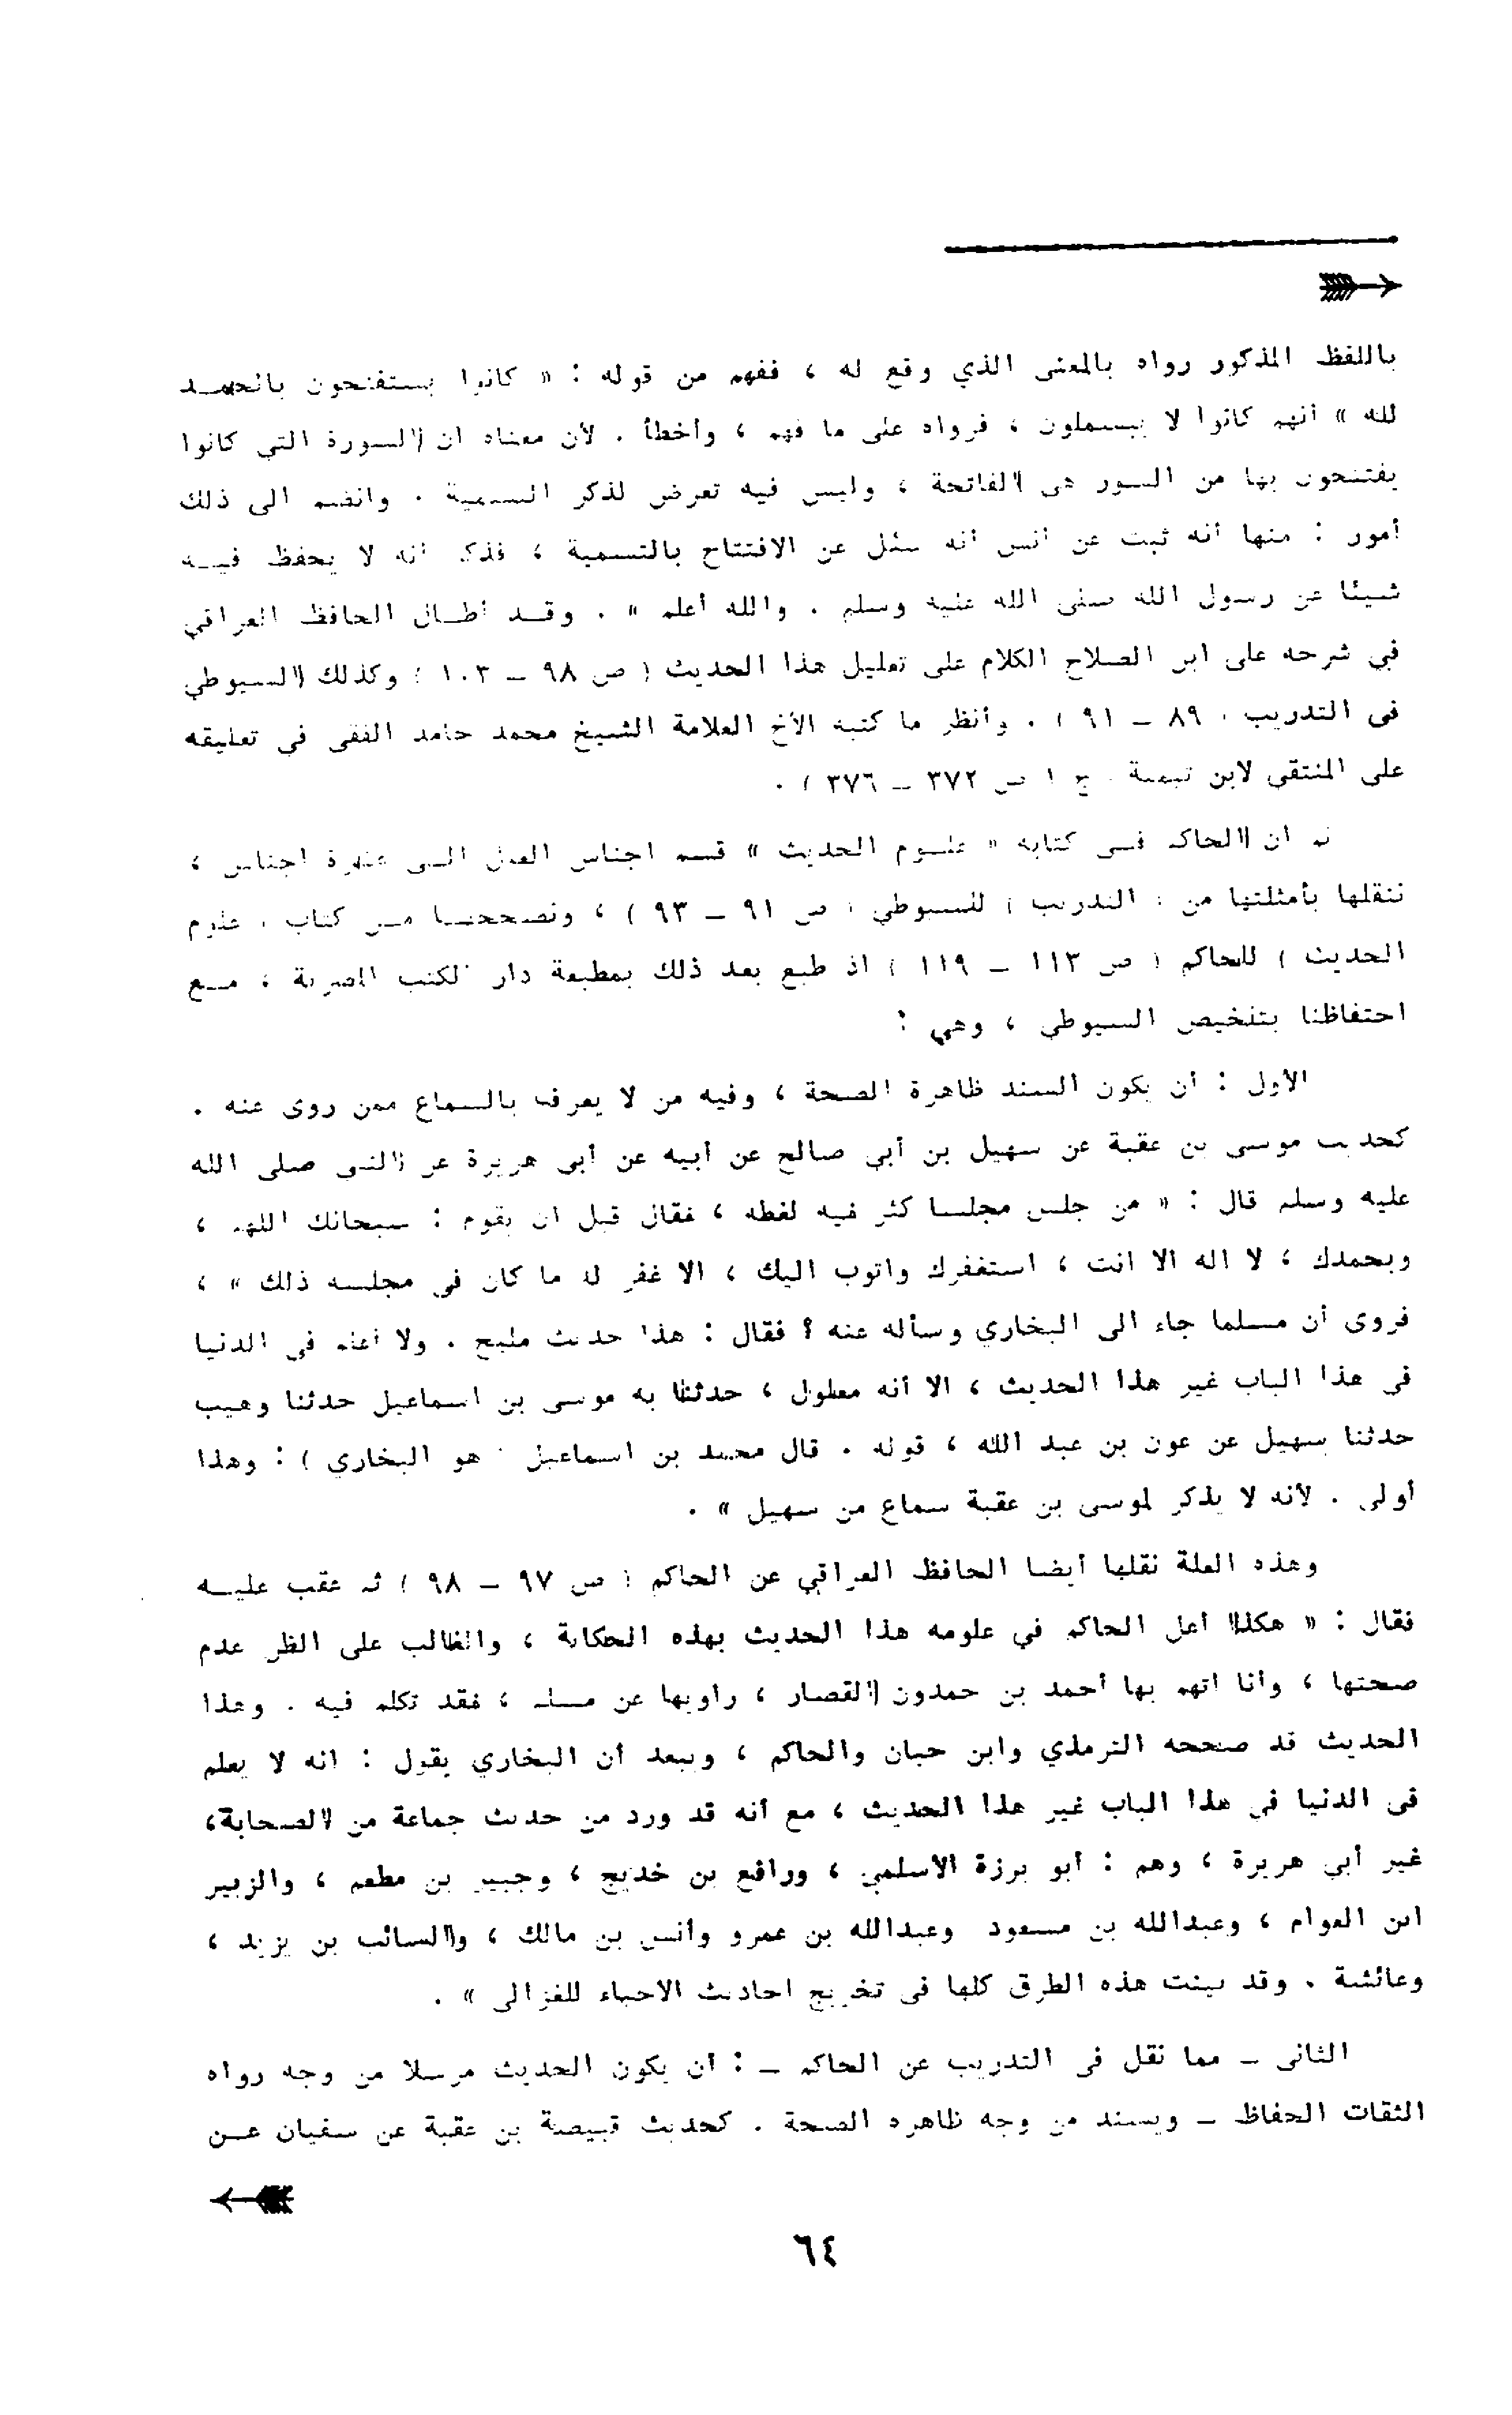 باللفظ المذكور رواه بالمعنى الذي وقع له ، ففهم من قوله : « كانوا يستفتحون بالحمد
لله » أنهم كانوا لا يبسملون ، فرواه على ما فهم ، وأخطأ . لأن معناه ان السورة التي كانوا
يفتتحون بها من السور هى الفاتحة ، وليس فيه تعرض لذكر التسمية . وانضم الى ذلك
أمور : منها أنه ثبت عن أنس أنه سئل عن الافتتاح بالتسمية ، فذكر انه لا يحفظ فيه
شيئا عن رسول الله صلى الله عليه وسلم . والله أعلم » . وقد أطال الحافظ العراقي
في شرحه على ابن الصلاح الكلام على تعليل هذا الحديث ( ص ٩٨ – ١٠٣ ) وكذلك السيوطي
فى التدريب ( ٨٩ – ٩١ ) . وأنظر ما كتبه الأخ العلامة الشيخ محمد حامد الفقى في تعليقه
على المنتقى لابن تيمية ج ١ ص ٣٧٢ – ٣٧٦ ) .
ثم ان الحاكم فى كتابه « علوم الحديث » قسم اجناس العلل الى عشرة اجناس ،
ننقلها بأمثلتها من ( التدريب ) للسيوطي ( ص ٩١ – ٩٣ ) ، ونصححها من كتاب ( علوم
الحديث ) للحاكم ( ص ١١٣ – ١١٩ ) اذ طبع بعد ذلك بمطبعة دار الكتب المصرية ، مع
احتفاظنا بتلخيص السيوطى ، وهي :
الأول : أن يكون السند ظاهرة الصحة ، وفيه من لا يعرف بالسماع ممن روى عنه .
كحديث موسى بن عقبة عن سهيل بن أبي صالح عن أبيه عن أبى هريرة عن النبى صلى الله
عليه وسلم قال : « من جلس مجلسا كثر فيه لغطه ، فقال قبل ان يقوم : سبحانك اللهم ،
وبحمدك ، لا اله الا انت ، استغفرك واتوب اليك ، الا غفر له ما كان فى مجلسه ذلك » ،
فروى أن مسلما جاء الى البخاري وسأله عنه ؟ فقال : هذا حديث مليح . ولا أعلم فى الدنيا
فى هذا الباب غير هذا الحديث ، الا أنه معلول ، حدثنا به موسى بن اسماعيل حدثنا وهيب
حدثنا سهيل عن عون بن عبد الله ، قوله . قال محمد بن اسماعيل ( هو البخاري ) : وهذا
أولى . لأنه لا يذكر لموسى بن عقبة سماع من سهيل » .
وهذه العلة نقلها أيضا الحافظ العراقي عن الحاكم ( ص ٩٧ – ٩٨ ) ثم عقب عليه
فقال : « هكذا أعل الحاكم في علومه هذا الحديث بهذه الحكاية ، والغالب على الظن عدم
صحتها ، وأنا اتهم بها أحمد بن حمدون القصار ، راويها عن مسلم ، فقد تكلم فيه . وهذا
الحديث قد صححه الترمذي وابن حبان والحاكم ، ويبعد أن البخاري يقول : انه لا يعلم
فى الدنيا فى هذا الباب غير هذا الحديث ، مع أنه قد ورد من حديث جماعة من الصحابة،
غير أبي هريرة ، وهم : أبو برزة الأسلمي ، ورافع بن خديج ، وجبير بن مطعم ، والزبير
ابن العوام ، وعبدالله بن مسعود وعبدالله بن عمرو وأنس بن مالك ، والسائب بن يزيد ،
وعائشة . وقد بينت هذه الطرق كلها فى تخريج احاديث الاحياء للغزالى » .
الثانى – مما نقل فى التدريب عن الحاكم – : أن يكون الحديث مرسلا من وجه رواه
الثقات الحفاظ – ويسند من وجه ظاهره الصحة . كحديث قبيصة بن عقبة عن سفيان عن
٦٤